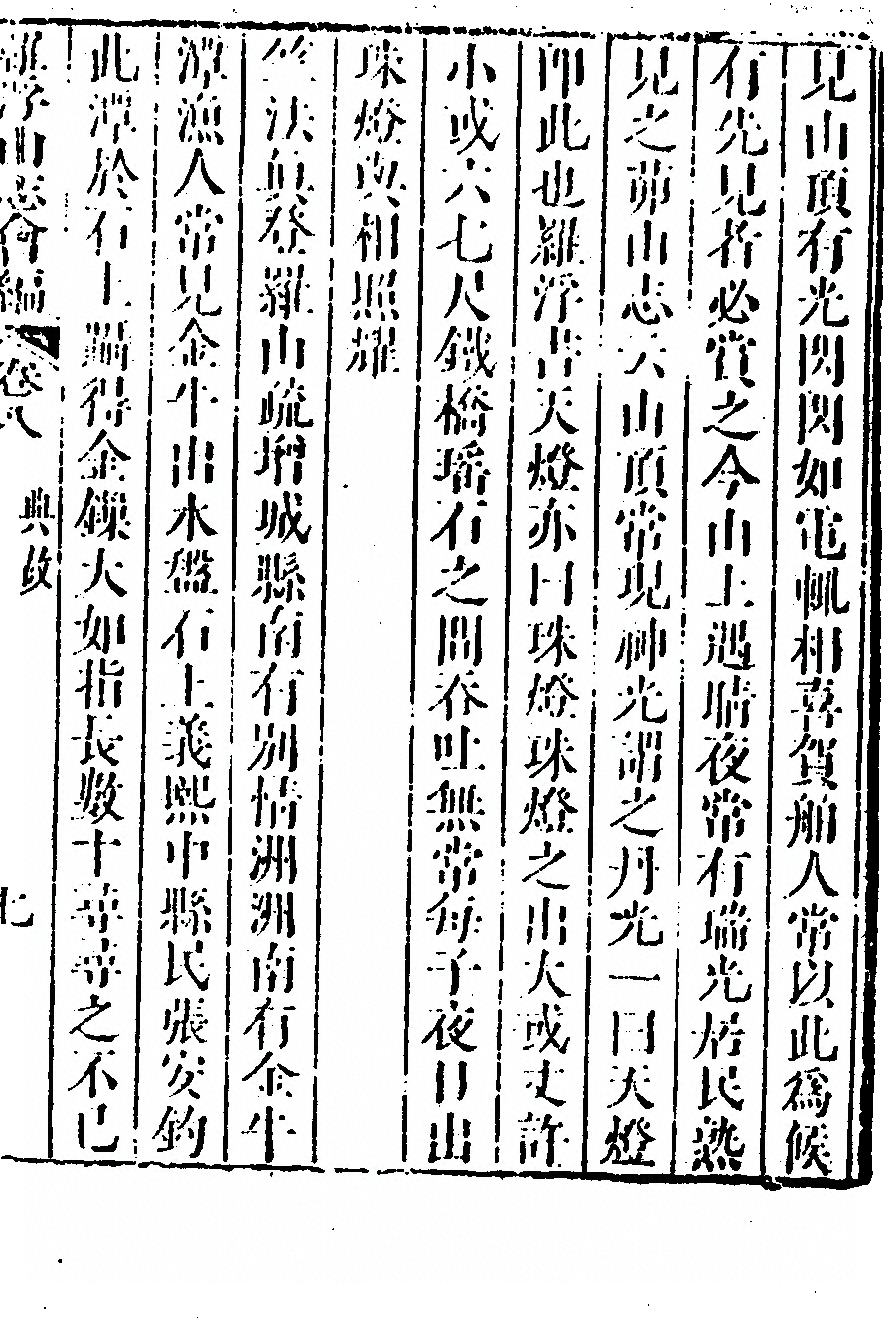 見山頂有光閃閃如電輒相喜賀舶人常以此爲候
有先見者必賞之今山上遇晴夜常有瑞光居民熟
見之茆山志云山頂常現神光謂之丹光一曰天燈
即此也羅浮書天燈亦曰珠燈珠燈之出大或丈許
小或六七尺鐵橋瑤石之間吞吐無常每子夜日出
珠燈與相照耀
竺法眞登羅山疏增城縣南有別情洲洲南有金牛
潭漁人常見金牛出水盤石上義熙中縣民張安釣
此潭於石上躡得金鏁大如指長數十尋尋之不已
羅浮山志會編 卷八 典故 七